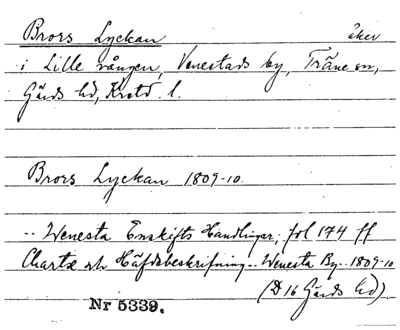 Brors Lyckan åker
i Lille vången, Venestads by, Träne sn,
Gärds hd, Krstd. l.
Brors Lyckan 1809-10.
-- Wenesta Enskifts Handlingar, fol 174 ff
Charta och Häfdebeskrifning -- Wenesta By -- 1809-10
(D 16 Gärds hd)
Nr 5339.